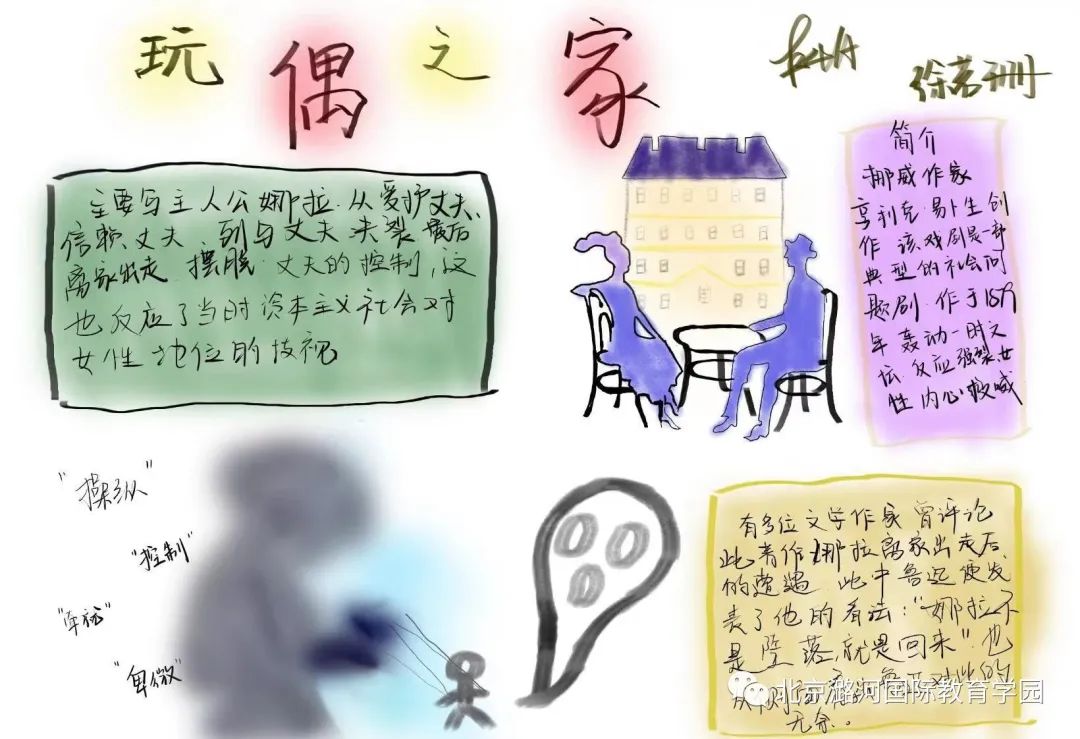 玩偶之家
徐若珊
主要写主人公娜拉.从爱护丈夫、
信赖丈夫、到与丈夫决裂 最后
离家出走.摆脱丈夫的控制,这
也反应了当时资本主义社会对
女性地位的歧视
简介
挪威作家
亨利克·易卜生创
作 该戏剧是一部
典型的社会问
题剧.作于1879
年轰动一时文
坛 反应强烈女
性内心
"操纵"
"控制"
"卑微"
有多位文学作家曾评论
此著作娜拉离家出走后
的遭遇 此中鲁迅便发
表了他的看法:"娜拉不
是堕落,就是回来"也
对此的
无奈。
北京潞河国际教育学园